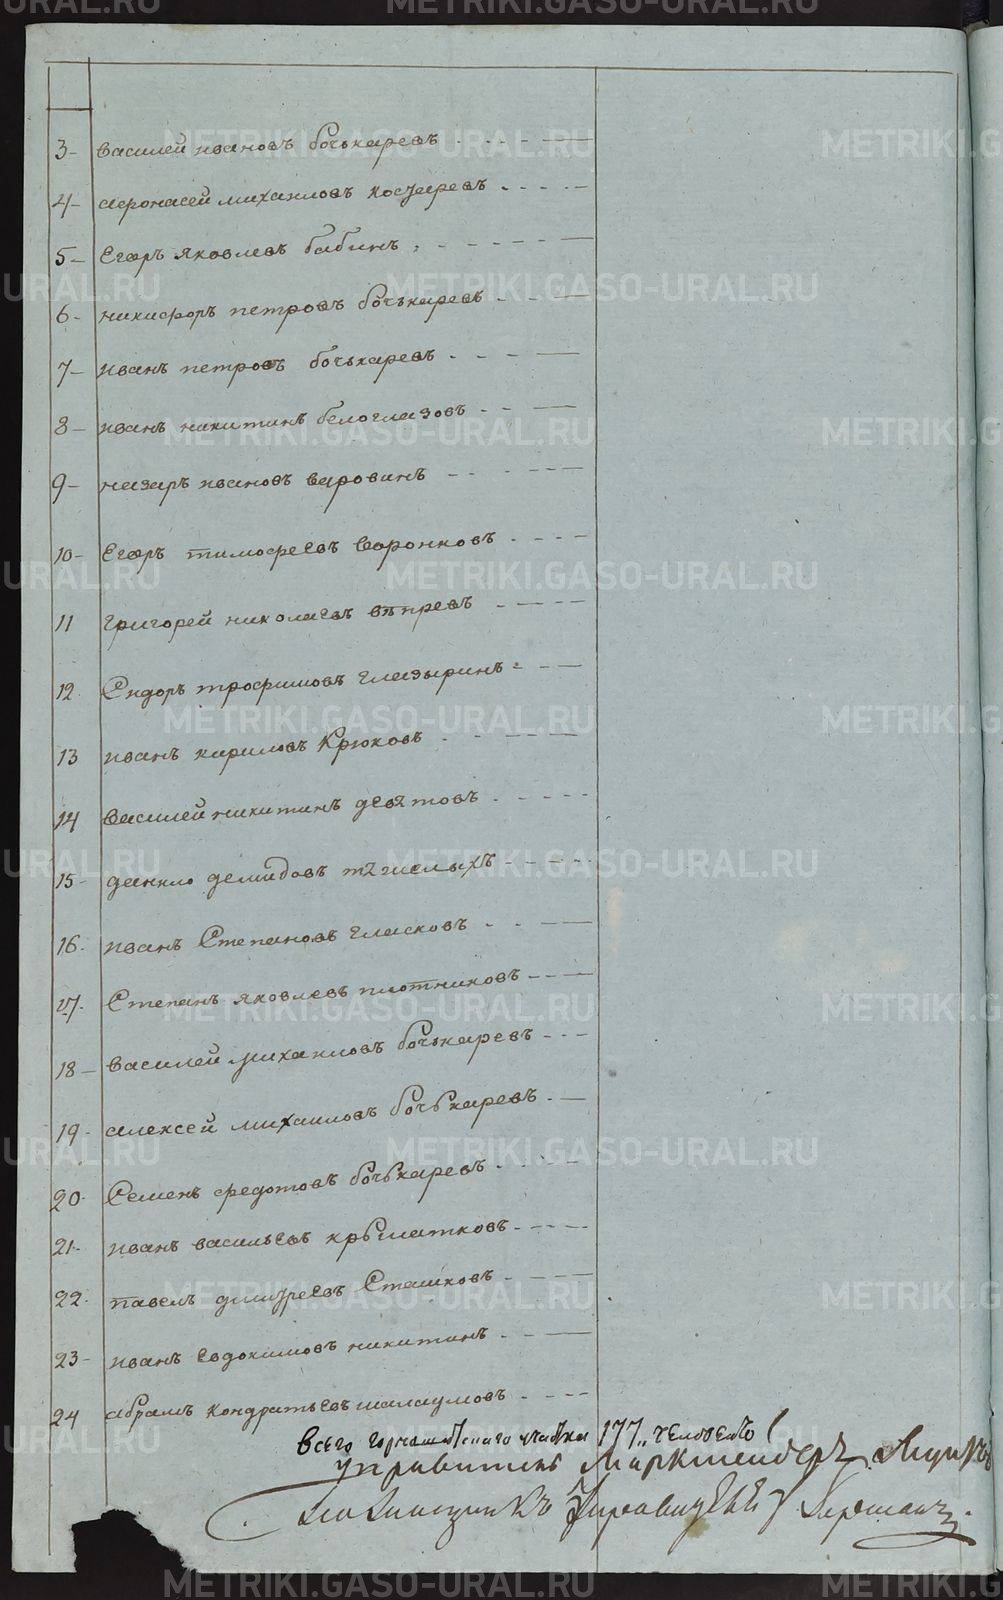 3- василей ивановъ бочькаревъ
4- афонасей михаиловъ косаревъ
5- Егоръ яковлевъ бабинъ
6- никифоръ петровъ бочькаревъ
7- иванъ петровъ бочькаревъ
8- иванъ никитинъ белоглазовъ
9- назаръ ивановъ варовинъ
10- Егоръ тимофеевъ воронковъ
11 григорей николаевъ вяпревъ
12. Сидоръ трофимовъ глазыринъ
13 иванъ кариловъ Крюковъ
14 василей никитинъ девятовъ
15- данило демидовъ тяжелыхъ
16. иванъ Степановъ гласковъ
17. Степанъ яковлевъ плотниковъ
18- василей михаиловъ бочькаревъ
19- алексей михаиловъ бочькаревъ
20. Семенъ федотовъ бочькаревъ
21. иванъ васильевъ крылатковъ
22. павелъ дмитреевъ Сташковъ
23- иванъ евдокимовъ никитинъ
24 абрамъ кондратьевъ шалаумовъ
всего 177,, человекъ
управитель Маркшейдеръ
METRIKI.GASO-URAL.RU